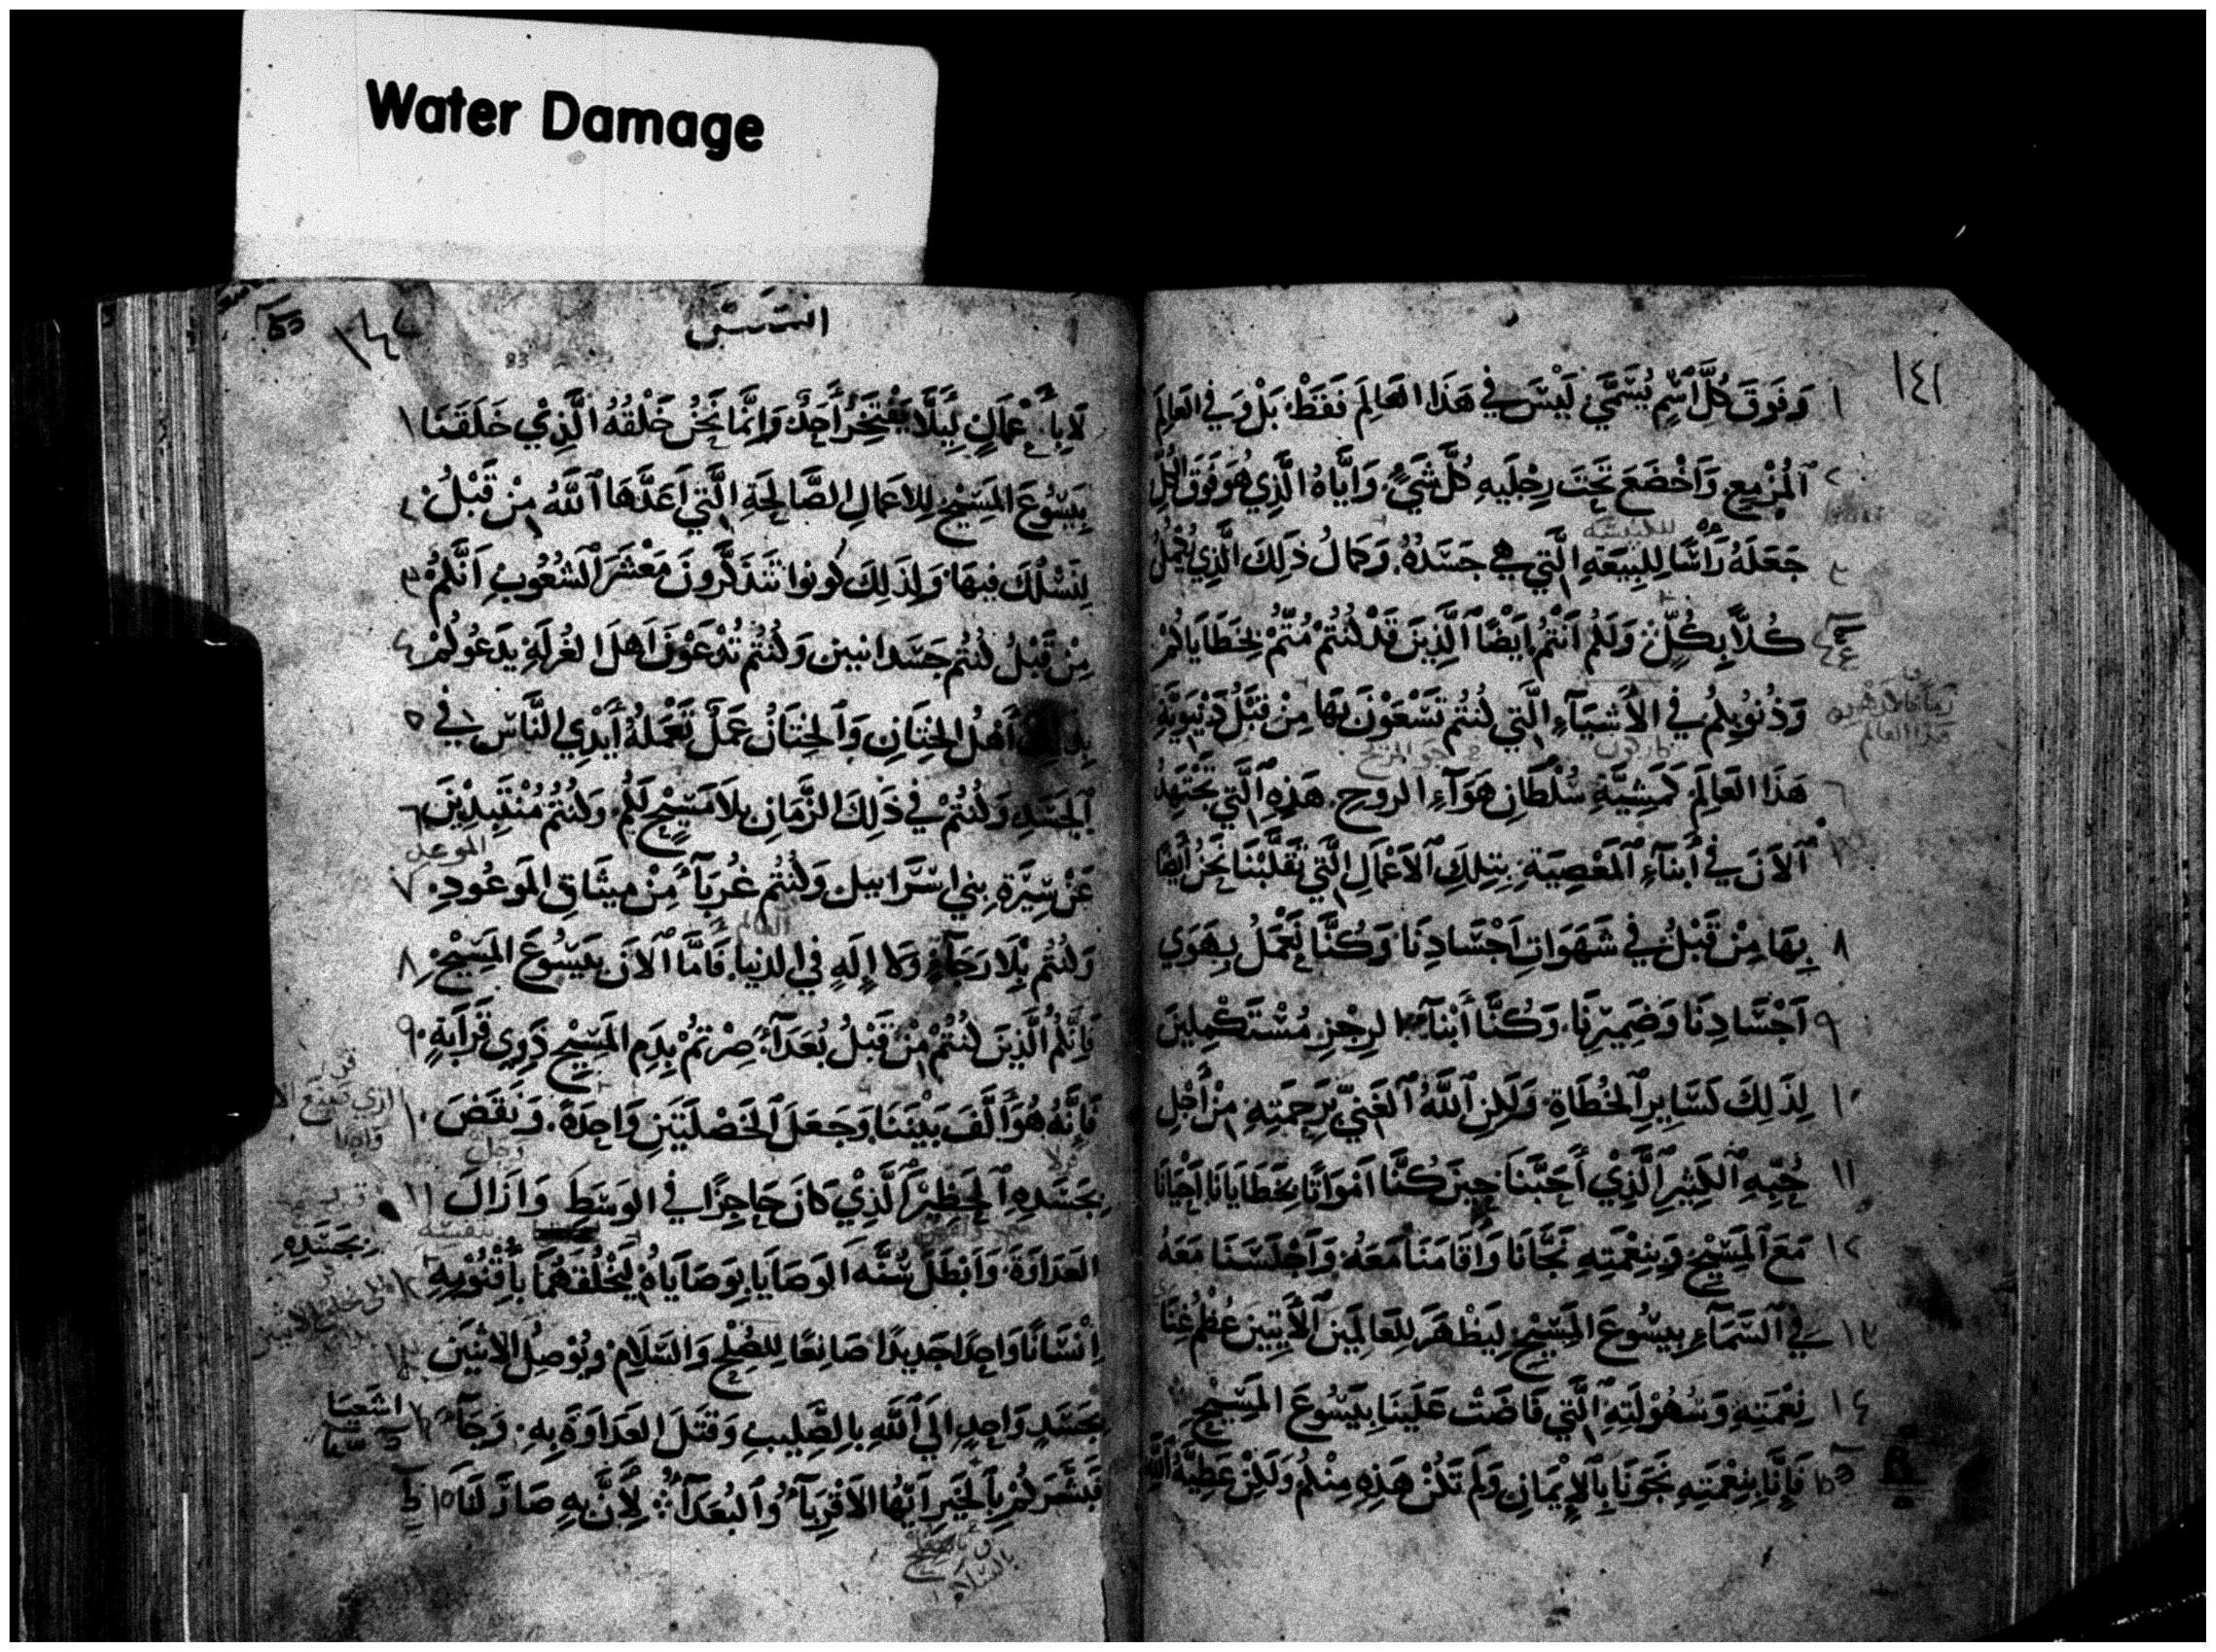 Water Damage
١٤١
١ وَفَوْقَ كُلِّ اسْمٍ يُسَمَّى لَيْسَ في هَذَا العَالَمِ فَقَطْ بَلْ وَفي العَالَمِ
٢ اَلْمُزْمِعِ وَاَخْضَعَ تَحْتَ رِجْلَيهِ كُلَّ شَيْءٍ وَاَيَّاهُ الَّذِي هُوَ فَوْقَ الكُلِّ
للكنيسة
٣ جَعَلَهُ رَأْسًا لِلبِيعَةِ الَّتِي هِيَ جَسَدُهُ. وَكَمَالُ ذَلِكَ الَّذِي يُكْمِلُ
كُلاًّ بِكُلٍّ وَلَكُمْ اَنْتُمْ اَيْضًا اَلَّذِينَ قَدْ كُنْتُمْ مُتُّمْ بِخَطَايَاكُمْ
٥ وَذُنُوبِكُمْ في الاَشْيَآءِ الَّتِي كُنْتُمْ تَسْعَوْنَ بِهَا مِنْ قَبْلُ دُنْيَوِيَّةِ
هَذَا العَالَمِ كَمَشِيَّةِ سُلْطَانِ هَوَآءِ الروح. هَذِهِ اَلَّتِي تَجْتَهِدُ
اَلاَنَ في أَبنَآءِ اَلمَعْصِيَةِ بِتِلكَ اَلاَعْمَالِ الَّتِي تَقَلَّبْنَا نَحْنُ اَيْضًا
٨ بِهَا مِنْ قَبْلُ في شَهَوَاتِ اَجْسَادِنَا وَكُنَّا نَعْمَلُ بِهَوَي
٩ اَجْسَادِنَا وَضَمِيرِنَا. وَكُنَّا أَبْنَآءَ الرِجْزِ مُسْتَكْمِلِينَ
١٠ لِذَلِكَ كَسَايِرِ اَلخُطَاةِ وَلَكِنِ اَللَّهُ اَلغَنِيُّ بِرَحْمَتِهِ مِنْ أَجْلِ
١١ حُبِّهِ اَلكَثِيرِ اَلَّذِيْ أَحَبَّنَا حِينَ كُنَّا اَمْوَاتًا بِخَطَايَانَا اَحْيَانَا
١٢ مَعَ اَلمَسِيْحِ وَبِنِعْمَتِهِ نَجَّانَا وَأَقَامَنَا مَعَهُ وَاَجْلَسَنَا مَعَهُ
١٣ في اَلسَّمَآءِ بِيسُوعَ المَسِيْحِ لِيَظْهَرَ لِلعَالَمِينَ اَلآتِيينَ عُظْمُ غِنَا
١٤ نِعْمَتِهِ وَسُهُوْلَتِهِ اَلَّتِي فَاضَتْ عَلَينَا بِيَسُوعَ المَسِيْحِ
فَإِنَّا بِنِعْمَتِهِ نَجَوْنَا بِالإِيْمَانِ وَلَمْ تَكُنْ هَذِهِ مِنْكُمْ وَلَكِنْ عَطِيَّةُ اللَّهِ
١٤٢
83
لَا بِأَعْمَالٍ لِيَلَّا يَفْتَخِرَ أَحَدٌ وَاِنَّمَا نَحْنُ خَلْقُهُ الَّذِيْ خَلَقَنَا ١
بِيَسُوعَ المَسِيْحِ لِلاَعمَالِ الصَّالِحَةِ الَّتِي اَعَدَّهَا اَللَّهُ مِنْ قَبْلُ ٢
لِنَسْلُكَ فِيهَا وَلِذَلِكَ كُونُوا تَتَذَكَّرُونَ مَعْشَرَ اَلشُّعُوبِ اَنَّكُمْ ٣
مِنْ قَبْلُ كُنْتُمْ جَسَدَانيين وَكُنْتُمْ تُدْعَوْنَ اَهلَ الغُرلَةِ يَدْعُوكُمْ ٤
بِذَلِكَ أَهْلُ الخِتَانِ وَاَلخِتَانُ عَمَلٌ تَعْمَلُهُ أَيْدِي النَّاسِ في ٥
اَلجَسَدِ وَكُنْتُمْ في ذَلِكَ الزَّمَانِ بِلاَ مَسِيْحٍ لَكُمْ وَكُنْتُمْ مُنْتَبِذِيْنَ ٦
الموعد
عَنْ سِيْرَةِ بني اِسْرَايِيل وَكُنْتُمْ غُرَبَآءَ مِنْ مِيثَاقِ المَوعُودِ ٧
العالم
وَكُنْتُم بِلَا رَجَآءٍ وَلَا إِلَهٍ في الدنيا. فَاَمَّا اَلاَنَ بِيَسُوعَ المَسِيْحِ ٨
فَاِنَّكُمُ الَّذِينَ كُنْتُمْ مِنْ قَبْلُ بُعَدَآءَ صِرْتُمْ بِدَمِ المَسِيْحِ ذَوِي قَرَابَةٍ ٩
فَإِنَّهُ هُوَ أَلَّفَ بَيْنَنَا وَجَعَلَ اَلخَصْلَتَينِ وَاحِدَةً. وَنَقَضَ ١٠
بِجَسَدِهِ اَلحَظِيرَ الَّذِيْ كَانَ حَاجِزًا في الوَسَطِ وَاَزَالَ ١١
بنفسه
بجسده
العَدَاوَةَ وَاَبْطَلَ سُنَّةَ الوَصَايَا بِوَصَايَاهُ لِيَخْلُقَهُمَا بِأُقْنُوْمِهِ ١٢
اِنْسَانًا وَاحِدًا جَدِيدًا صَانِعًا لِلصُّلْحِ وَالسَّلَامِ وَيُوْصِلُ الاثْنَينِ ١٣
بِجَسَدٍ وَاحِدٍ اِلَي اَللَّهِ بِالصَّلِيبِ وَقَتَلَ العَدَاوَةَ بِهِ. وَجَآءَ ١٤
اشعيا
فَبَشَّرَكُمْ بِالخَيرِ اَيُّهَا الاَقْرِبَآءُ وَاَلبُعَدَآءُ لِأَنَّ بِهِ صَارَ لَنَا ١٥
بالسلام